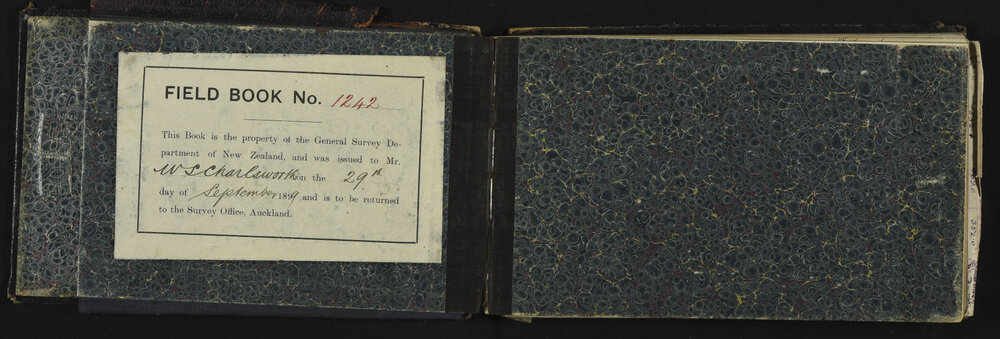 FIELD BOOK No. 1242
This Book is the property of the General Survey De-
partment of New Zealand, and was issued to Mr.
W S Charlsworth on the 29th
day of September 1899 and is to be returned
to the Survey Office, Auckland.